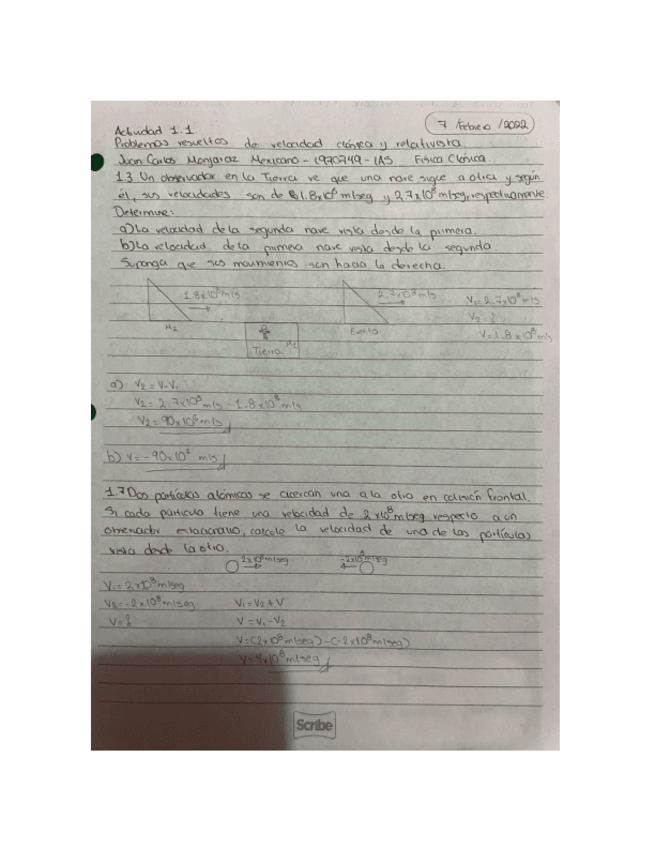 7 Febrero /2022
Actividad 1.1
Problemas resueltos de velocidad clásica y relativista
Juan Carlos Monjaraz Mexicano - 1970749 - IAS Física Clásica
1.3 Un observador en la Tierra ve que una nave sigue a otra y según
él, sus velocidades son de 1.8x10⁸ m/seg y 2.7x10⁸ m/seg, respectivamente
Determine:
a) La velocidad de la segunda nave vista desde la primera.
b) La velocidad de la primera nave vista desde la segunda.
Suponga que sus movimientos son hacia la derecha.
1.8x10⁸ m/s 2.7x10⁸ m/s V₁=2.7x10⁸ m/s
V₂=?
M2 V=1.8x10⁸ m/s
Tierra
a) V₂=V-V₁
V₂= 2.7x10⁸ m/s - 1.8x10⁸ m/s
V₂= 90x10⁶ m/s
b) V= -90x10⁶ m/s
1.7 Dos partículas atómicas se acercan una a la otra en colisión frontal.
Si cada partícula tiene una velocidad de 2x10⁸ m/seg respecto a un
observador estacionario, calcule la velocidad de una de las partículas
vista desde la otra.
2x10⁸ m/seg -2x10⁸ m/seg
V₁= 2x10⁸ m/seg
V₂= -2x10⁸ m/seg V₁=V₂+V
V=? V=V₁-V₂
V=(2x10⁸ m/seg)-(-2x10⁸ m/seg)
V=4x10⁸ m/seg
Scribe